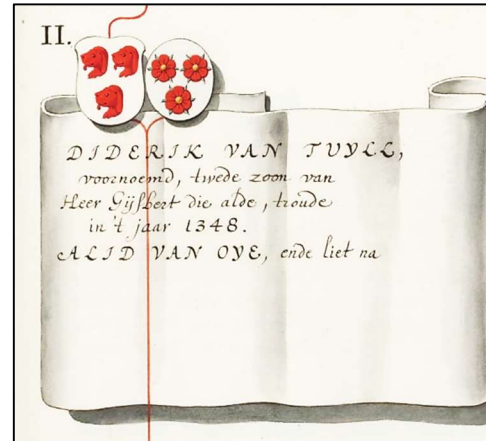 II.
DIDERIK VAN TUYLL,
voornoemd, twede zoon van
Heer Gijsbert die alde, troude
in 't jaar 1348.
ALID VAN OYE, ende liet na